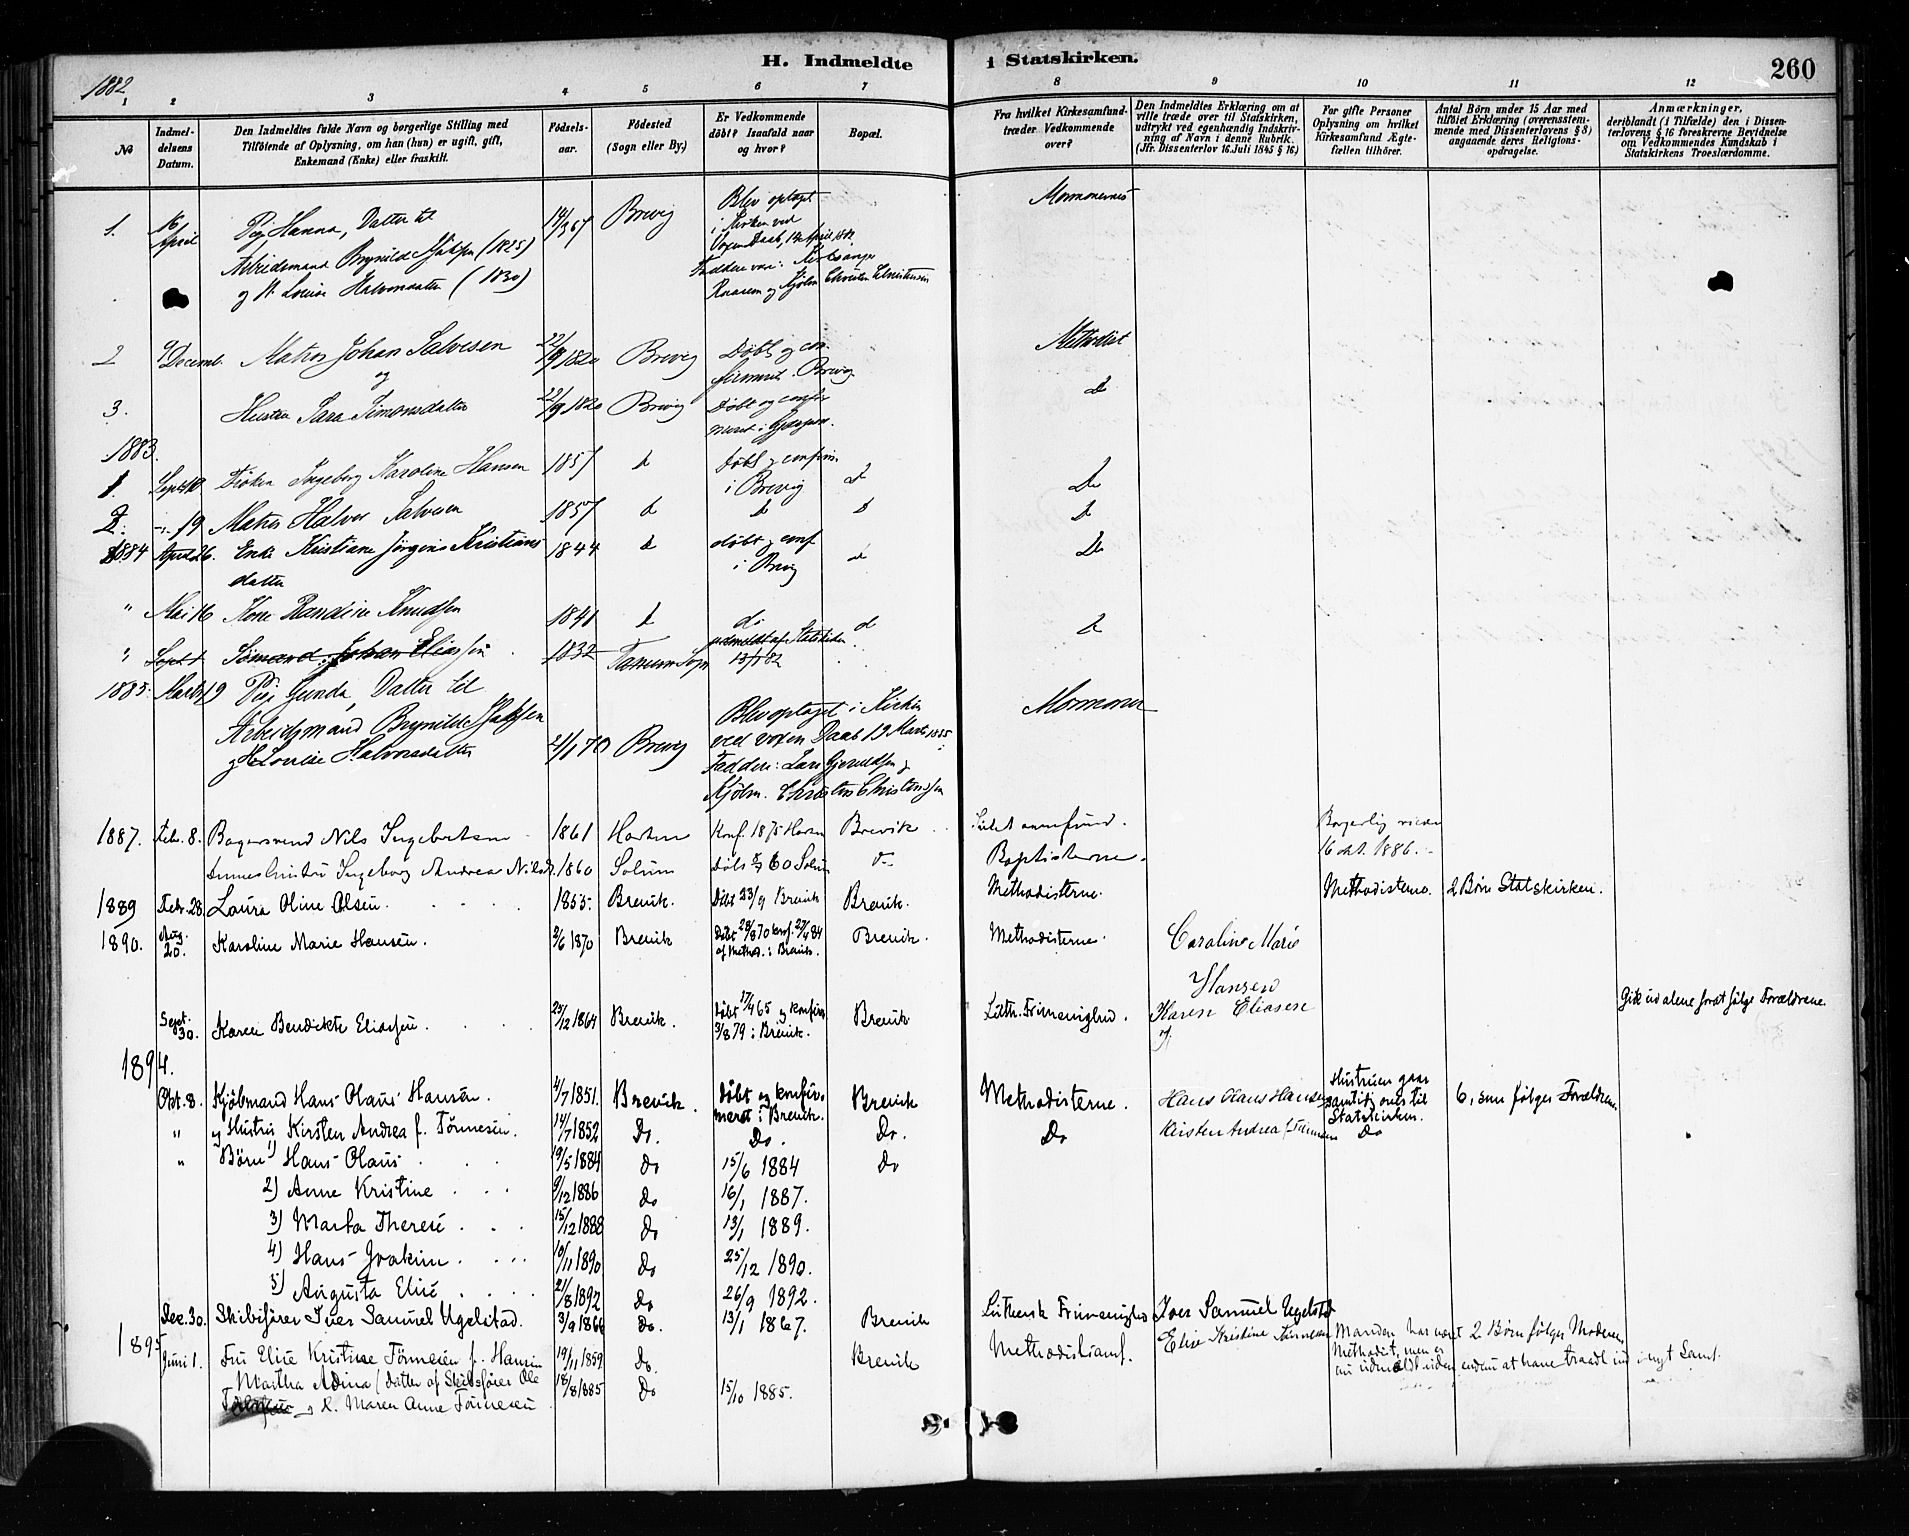 H. Indmeldte i Statskirken.
260
1882
1 2 3 4 5 6 7 8 9 10 11 12
No
Indmel-
delsens
Datum.
Den Indmeldtes fulde Navn og borgerlige Stilling med
Tilföiende af Oplysning, om han (hun) er ugift, gift,
Enkemand (Enke) eller fraskilt.
Födsels-
aar.
Födested
(Sogn eller By.)
Er Vedkommende
döbt? Isaafald naar
og hvor?
Bopæl.
Fra hvilket Kirkesamfund
træder Vedkommende
over?
Den Indmeldtes Erklæring om at
ville træde over til Statskirken,
udtrykt ved egenhændig Indskriv-
ning af Navn i denne Rubrik.
(Jfr. Dissenterlov 16. Juli 1845 § 16.)
For gifte Personer
Oplysning om hvilket
Kirkesamfund Ægte-
fællen tilhörer.
Antal Börn under 15 Aar med
tilföiet Erklæring (overensstem-
mende med Dissenterlovens § 8)
angaaende deres Religions-
opdragelse.
Anmærkninger,
deriblandt (i Tilfælde) den i Dissen-
terlovens § 16 foreskrevne Bevidnelse
om Vedkommendes Kundskab i
Statskirkens Troeslærdomme.
1. 16 April Pige Hanna, Datter til 14/3 67 Brevig Blev optaget Mormonernes
i Kirken ved
Arbeidsmand Brynild (1825) Voxen Daab, 12 April 1882
og H. Louise Halvorsdatter (1830) Faddere vare:
Christensen
2 9 Decemb. Matros Johan Salvesen 1820 Brevig Döbt og con- Methodist
og firmeret. Brevig
3. Hustru Sara Simonsdatter 22/9 1820 Brevig Döbt og confir- Do
meret i Gjerpen.
1883.
1. Sept 10 Fröken Ingeborg Karoline Hansen 1857 d döbt og confirm. d Do
i Brevig
2. -"- 19 Matros Halvor Salvesen 1857 d d d d
1884 April 26. Enke Kristiane Jörgine Kristians 1844 d döbt og conf. d Do
datter i Brevig
" Mai 16 Kone Randine Knudsen 1841 d do d d
" Sept 1 Sömand Johan Eliassen 1832 Sogn udmeldt af Statskirken
13/1 82
1885. Marts 19 Pige Gunda, Datter til
Arbeidsmand Brynild Blev optaget i Kirken Mormoner
og H. Louise Halvorsdatter 21/1 70 Brevig ved voxen Daab 19 Marts 1885
Faddere: Lars
Kjöbm. Christen Christensen
1887. Febr. 8. Bagersvend Nils Ingebretsen 1861 Horten Konf. 1875 Horten Brevik Borgerlig viede
Hustru Ingeborg Andrea 1860 Solum Döbt 60 Solum Baptisterne. 16 okt. 1886.
1889 Febr. 28. Laura Oline Olsen. 1855. Brevik. Döbt 23/9 Brevik Brevik. Methodisterne. Methodisterne. 2 Börn Statskirken.
1890. Aug. 20. Karoline Marie Hansen. 2/6 1870 Brevik Döbt 28/8 70 konf. 27/4 84 Brevik. Methodisterne. Caroline Marie
af Method. i Brevik. Hansen
Sept. 30. Karen Bendikte Eliassen. 25/12 1864 Brevik. Döbt 17/4 65 og konfir. Brevik Luth. Frimenighed. Karen Eliasen Gik ud alene forat fölge Forældrene.
3/8 79 i Brevik.
1894.
Okt. 8. Kjöbmand Hans Olaus Hansen. 4/7 1851. Brevik. Döbt og konfir- Brevik Methodisterne. Hans Olaus Hansen Hustruen gaar 6, som fölger Forældrene.
meret i Brevik. samtidig over til
Statskirken.
" og Hustru Kirsten Andrea f. Tönnesen. 14/7 1852 Do. Do. Do. Do Kirsten Andrea f. Tönnesen Do
" Börn 1) Hans Olaus 19/5 1884 Do 15/6 1884 Do
2) Anne Kristine 9/12 1886 Do 16/1 1887.
3) Marta Therese 15/12 1888 Do 13/1 1889.
4) Hans Joakim 10/11 1890 Do 25/12 1890.
5) Augusta Elise 21/8 1892 Do 26/9 1892.
Dec. 30. Skibsförer Iver Samuel Ugelstad. 3/9 1866 Do. 13/1 1867. Brevik Luthersk Frimenighed Iver Samuel Ugelstad
1895
Juni 1. Fru Elise Kristine Tönnesen f. Hansen 19/11 1859 Do. Brevik Methodistsamf. Elise Kristine Tönnesen Manden har været 2 Börn fölger Moderen.
Methodist, men er
nu udmeldt uden endnu at have traadt ind i nyt Samf.
Martha Adina (datter af Skibsförer Ole 18/8 1885 Do 15/10 1885.
og H. Maren Anne Tönnesen